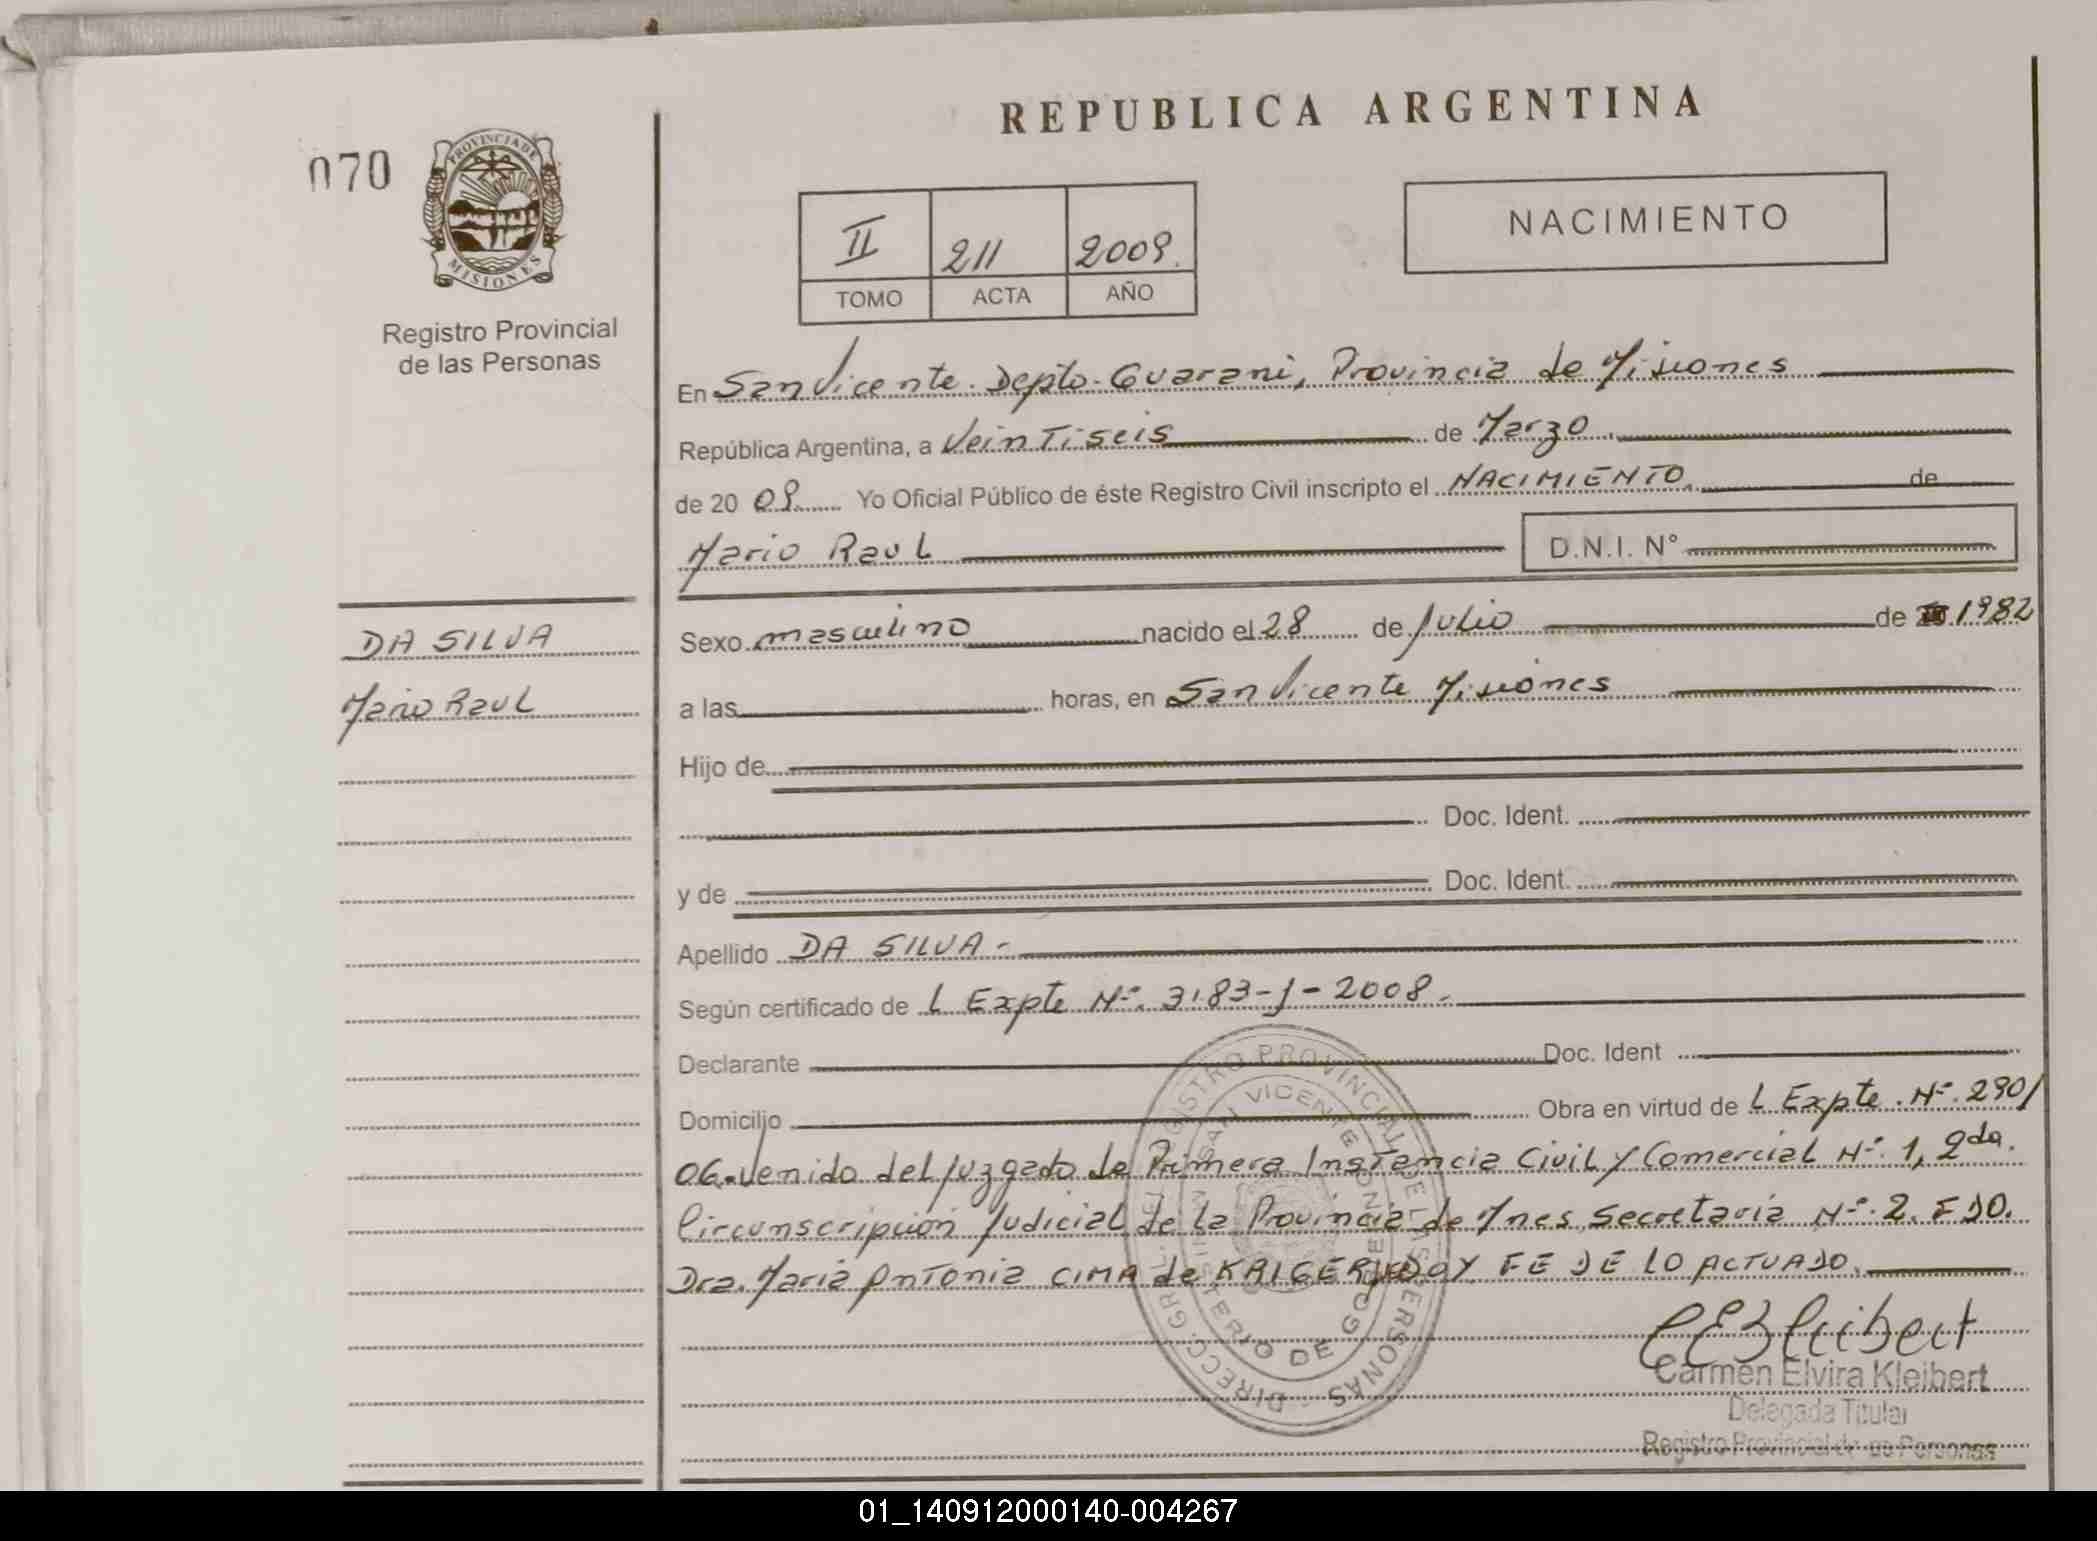 REPUBLICA ARGENTINA
070
PROVINCIA DE
MISIONES
Registro Provincial
de las Personas
NACIMIENTO
II 211 2009.
TOMO ACTA AÑO
En San Vicente. Depto. Guarani, Provincia de Misiones
República Argentina, a Veintiseis de Marzo.
de 20 09. Yo Oficial Público de éste Registro Civil inscripto el NACIMIENTO. de
Mario Raul D.N.I. N°
DA SILVA
Mario Raul
Sexo masculino nacido el 28 de Julio de 1982
a las horas, en San Vicente Misiones
Hijo de
Doc. Ident.
y de Doc. Ident.
Apellido DA SILVA-
Según certificado de L Expte Nº. 3183-J-2008.
Declarante Doc. Ident
Domicilio Obra en virtud de L Expte. Nº. 290/
06. Venido del Juzgado de Primera Instancia Civil y Comercial Nº. 1, 2da.
Circunscripción Judicial de la Provincia de Mnes, Secretaria Nº. 2. FDO.
Dra. Maria Antonia CIMA de KRIGER DOY FE DE LO ACTUADO.
CEKleibert
Carmen Elvira Kleibert
Delegada Titular
Registro Provincial de las Personas
DIRECC. GRAL. DEL REGISTRO PROVINCIAL DE LAS PERSONAS
SAN VICENTE
MINISTERIO DE GOBIERNO
01_140912000140-004267